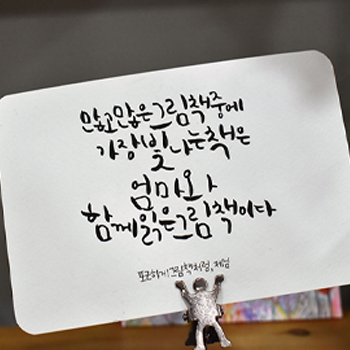 많고많은그림책중에
가장빛나는책은
엄마와
함께읽은그림책이다
포근하게그림책처럼, 제님